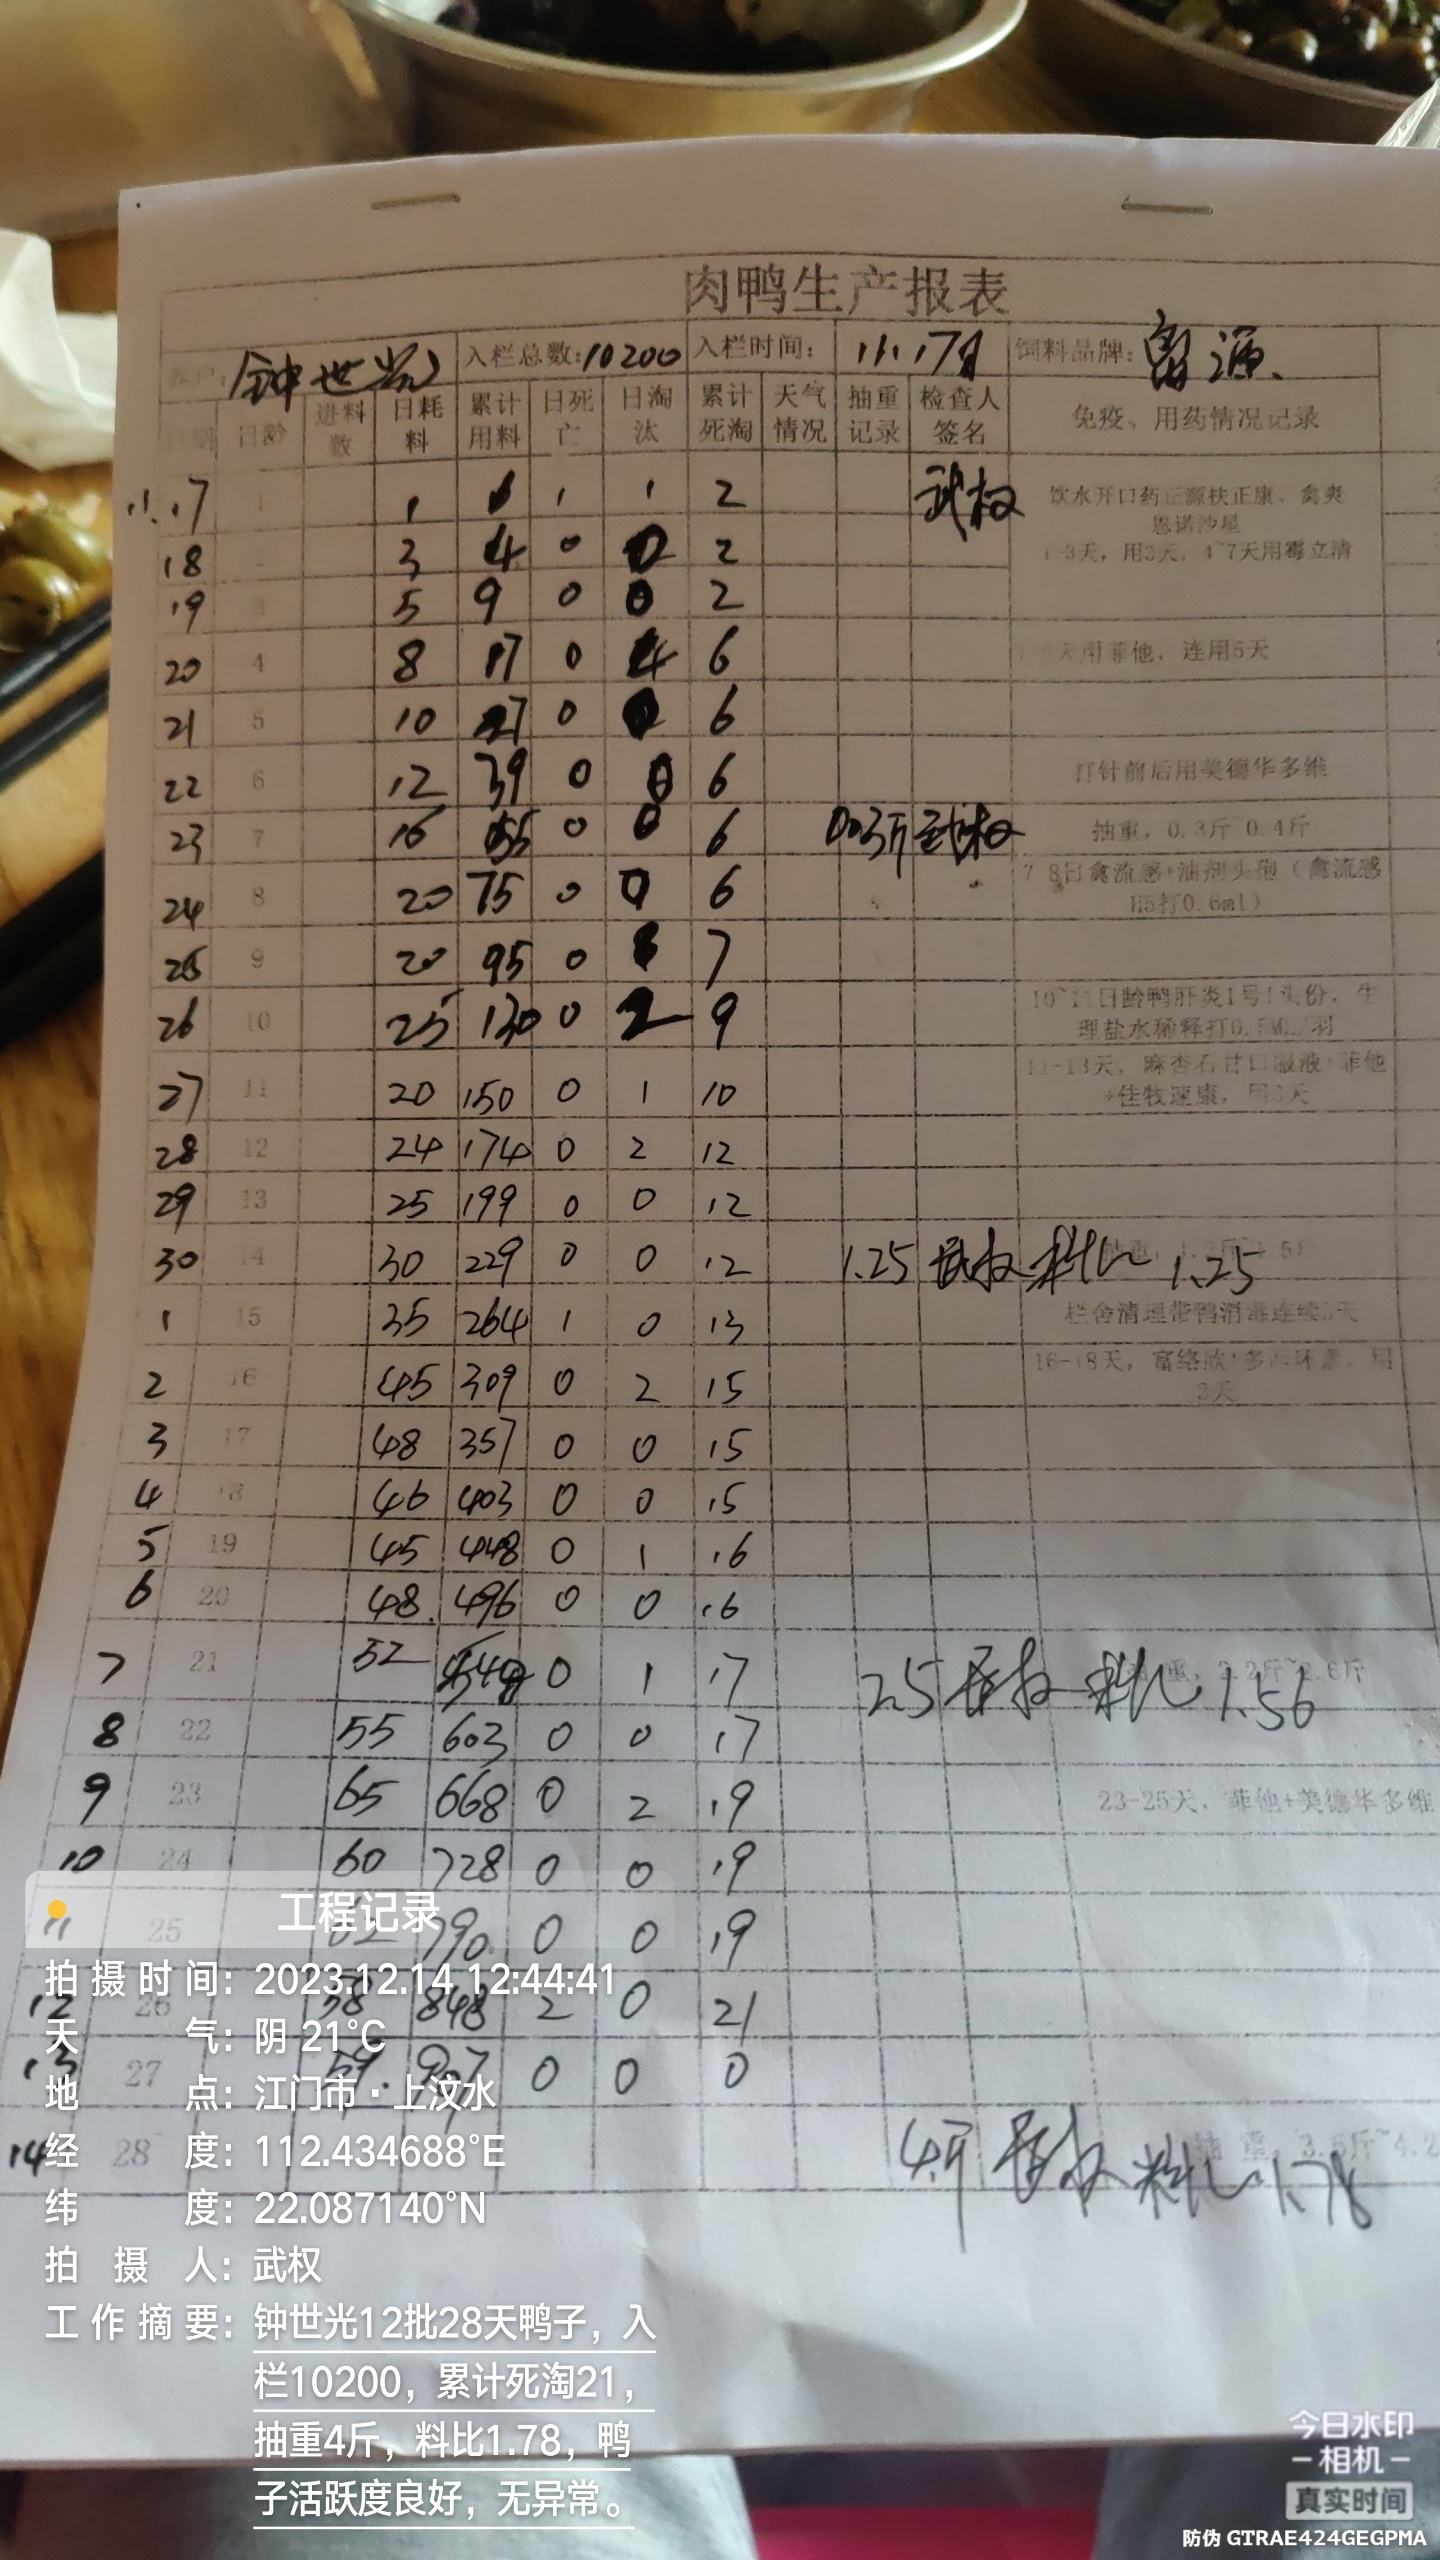 肉鸭生产报表
客户: 钟世光 入栏总数:10200 入栏时间: 11.17日 饲料品牌:
日期 日龄 进料数 日耗料 累计用料 日死亡 日淘汰 累计死淘 天气情况 抽重记录 检查人签名 免疫、用药情况记录
11.17 1 1 1 1 2 武权 饮水开口药正源扶正康、禽爽
恩诺沙星
1-3天，用3天，4~7天用霉立清
18 2 3 4 0 0 2
19 3 5 9 0 0 2
20 4 8 17 0 4 6 天用菲他，连用5天
21 5 10 27 0 0 6
22 6 12 39 0 0 6 打针前后用美德华多维
23 7 16 55 0 0 6 武权 抽重，0.3斤~0.4斤
24 8 20 75 0 0 6 7 8日禽流感+油剂头孢（禽流感
H5打0.6ml）
25 9 20 95 0 7
26 10 25 130 0 2 9 10~11日龄鸭肝炎1号1头份，生
理盐水稀释打0.5ML/羽
27 11 20 150 0 1 10 11-13天，麻杏石甘口服液+菲他
+佳牧速康，用3天
28 12 24 174 0 2 12
29 13 25 199 0 0 12
30 14 30 229 0 0 12 1.25 武权 料比 1.25
1 15 35 264 1 0 13 栏舍清理带鸭消毒连续3天
2 16 45 309 0 2 15 16-18天，富络欣+多西环素，用
3天
3 17 48 357 0 0 15
4 18 46 403 0 0 15
5 19 45 448 0 1 16
6 20 48. 496 0 0 16
7 21 52 548 0 1 17 2.5 武权 料比 1.56
8 22 55 603 0 0 17
9 23 65 668 0 2 19 23-25天，菲他+美德华多维
10 24 60 728 0 0 19
11 25 62 790 0 0 19
12 26 58 848 2 0 21
13 27 59. 907 0 0 0
14 28 4斤 武权 料比 1.78 抽重，3.5斤~4.2
工程记录
拍摄时间: 2023.12.14 12:44:41
天气: 阴 21°C
地点: 江门市·上汶水
经度: 112.434688°E
纬度: 22.087140°N
拍摄人: 武权
工作摘要: 钟世光12批28天鸭子，入
栏10200，累计死淘21，
抽重4斤，料比1.78，鸭
子活跃度良好，无异常。
今日水印
-相机-
真实时间
防伪 GTRAE424GEGPMA